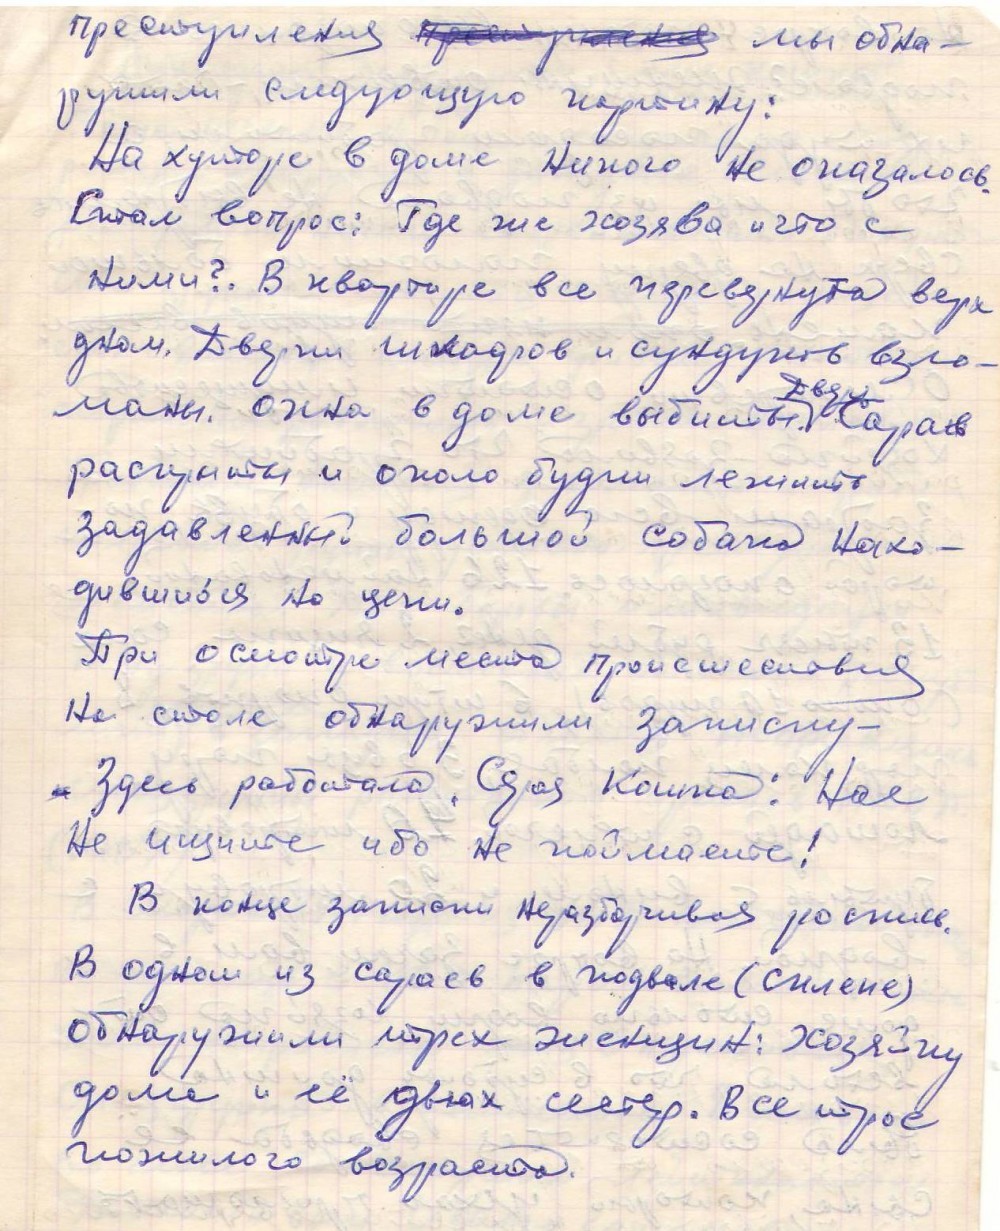 преступления ~~преступления~~ мы обна-
ружили следующую картину:
На хуторе в доме никого не оказалось.
Стал вопрос: Где же хозява и что с
ними?. В квартире все перевернута верх
дном. Двери шкафов и сундуков взло-
маны. Окна в доме выбиты. Двери Сараев
раскрыты и около будки лежит
задавленный большой собака нахо-
дившийся на цепи.
При осмотре места происшествия
На столе обнаружили записку-
Здесь работала. Серая Кошка: Нас
Не ищите ибо не поймаете!
В конце записки неразборчивая роспись.
В одном из сараев в подвале (склепе)
обнаружили трех женщин: хозяйку
дома и её двоих сестер. Все трое
пожилого возраста.